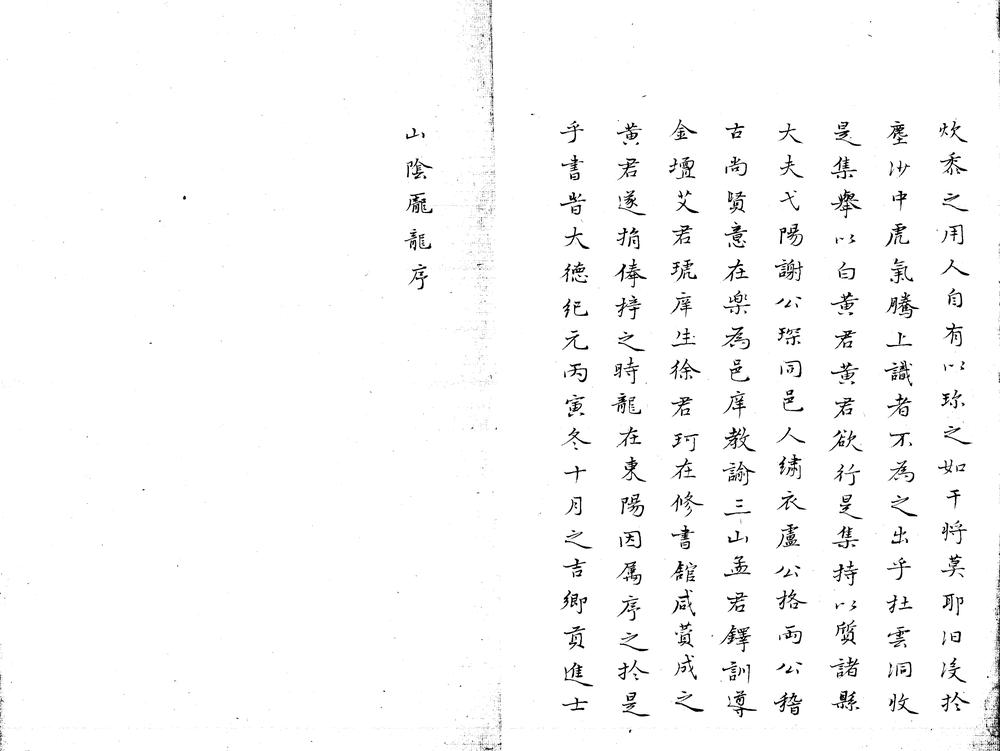 炊黍之用人自有以珎之如干将莫耶汩沒扵
塵沙中虎氣騰上識者不為之出乎杜雲洞收
是集舉以白黄君黄君欲行是集持以質諸縣
大夫弋陽謝公琛同邑人繡衣盧公格兩公稽
古尚賢意在樂為邑庠教諭三山孟君鐸訓導
金壇艾君琥庠生徐君珂在修書舘咸賛成之
黄君遂捐俸梓之時龍在東陽因属序之扵是
乎書旹大德紀元丙寅冬十月之吉鄉貢進士
山陰龎龍序